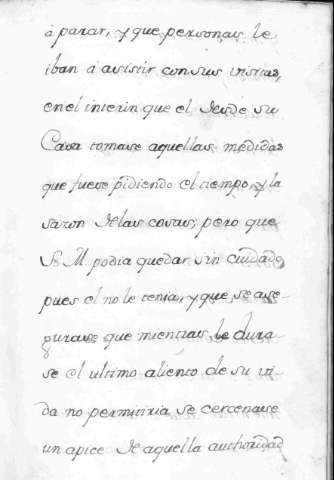 à parar, y que personas le
iban à asistir con sus visitas,
en el interin que el desde su
Casa tomase aquellas medidas
que fuese pidiendo el tiempo, y la
sazon de las cosas; pero que
S. M. podia quedar sin cuidado
pues el no le tenia, y que se ase-
gurase que mientras le dura-
se el ultimo aliento de su vi-
da no permitiria se cercenase
un apice de aquella authoridad